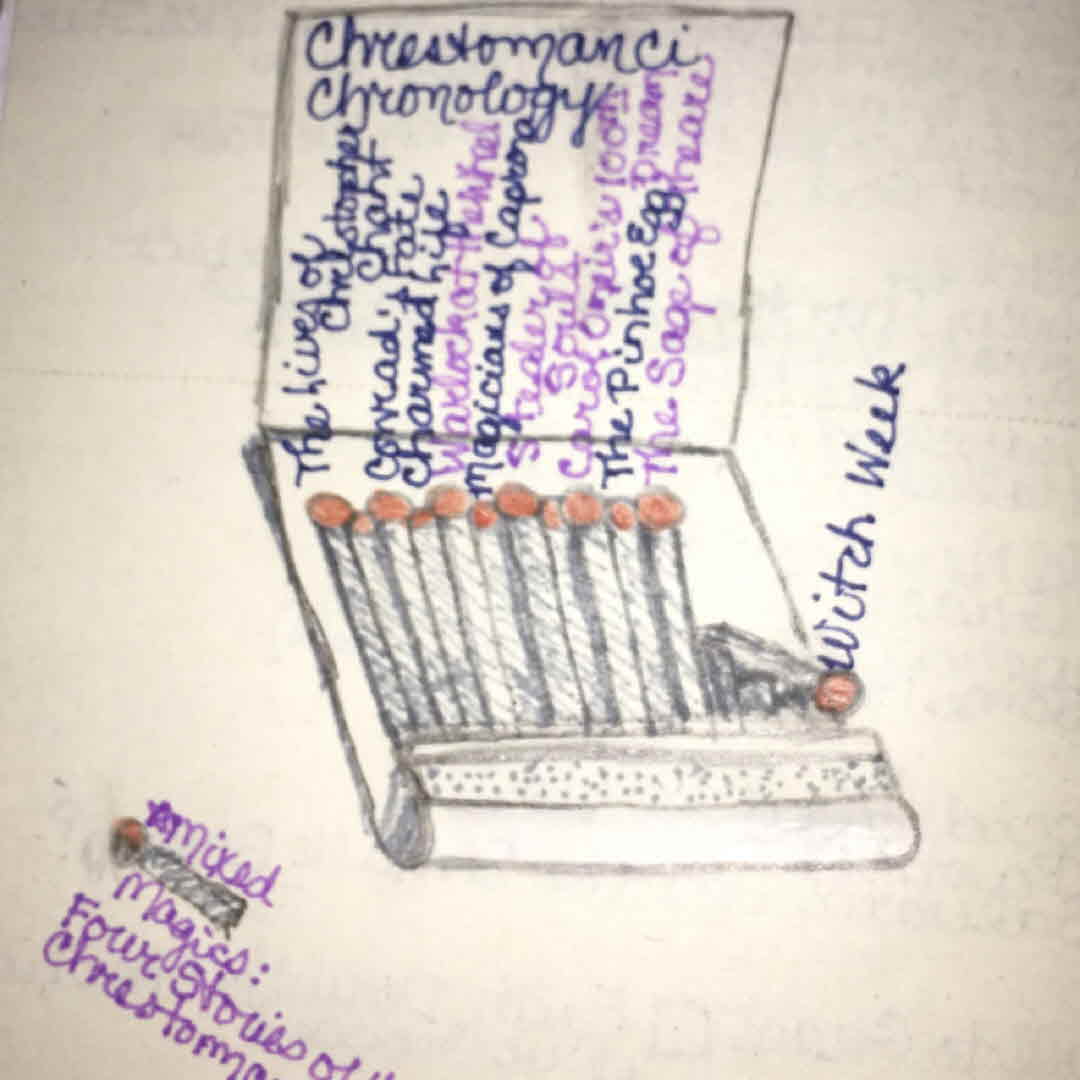 Chrestomanci
Chronology
The Lives of
Christopher
Chant
Conrad's Fate
Charmed Life
Warlock at the Wheel
Magicians of Caprona
Stealer of
Souls
Carol Oneir's 100th
Dream
The Pinhoe Egg
The Sage of Theare
Witch Week
Mixed
Magics:
Four Stories of